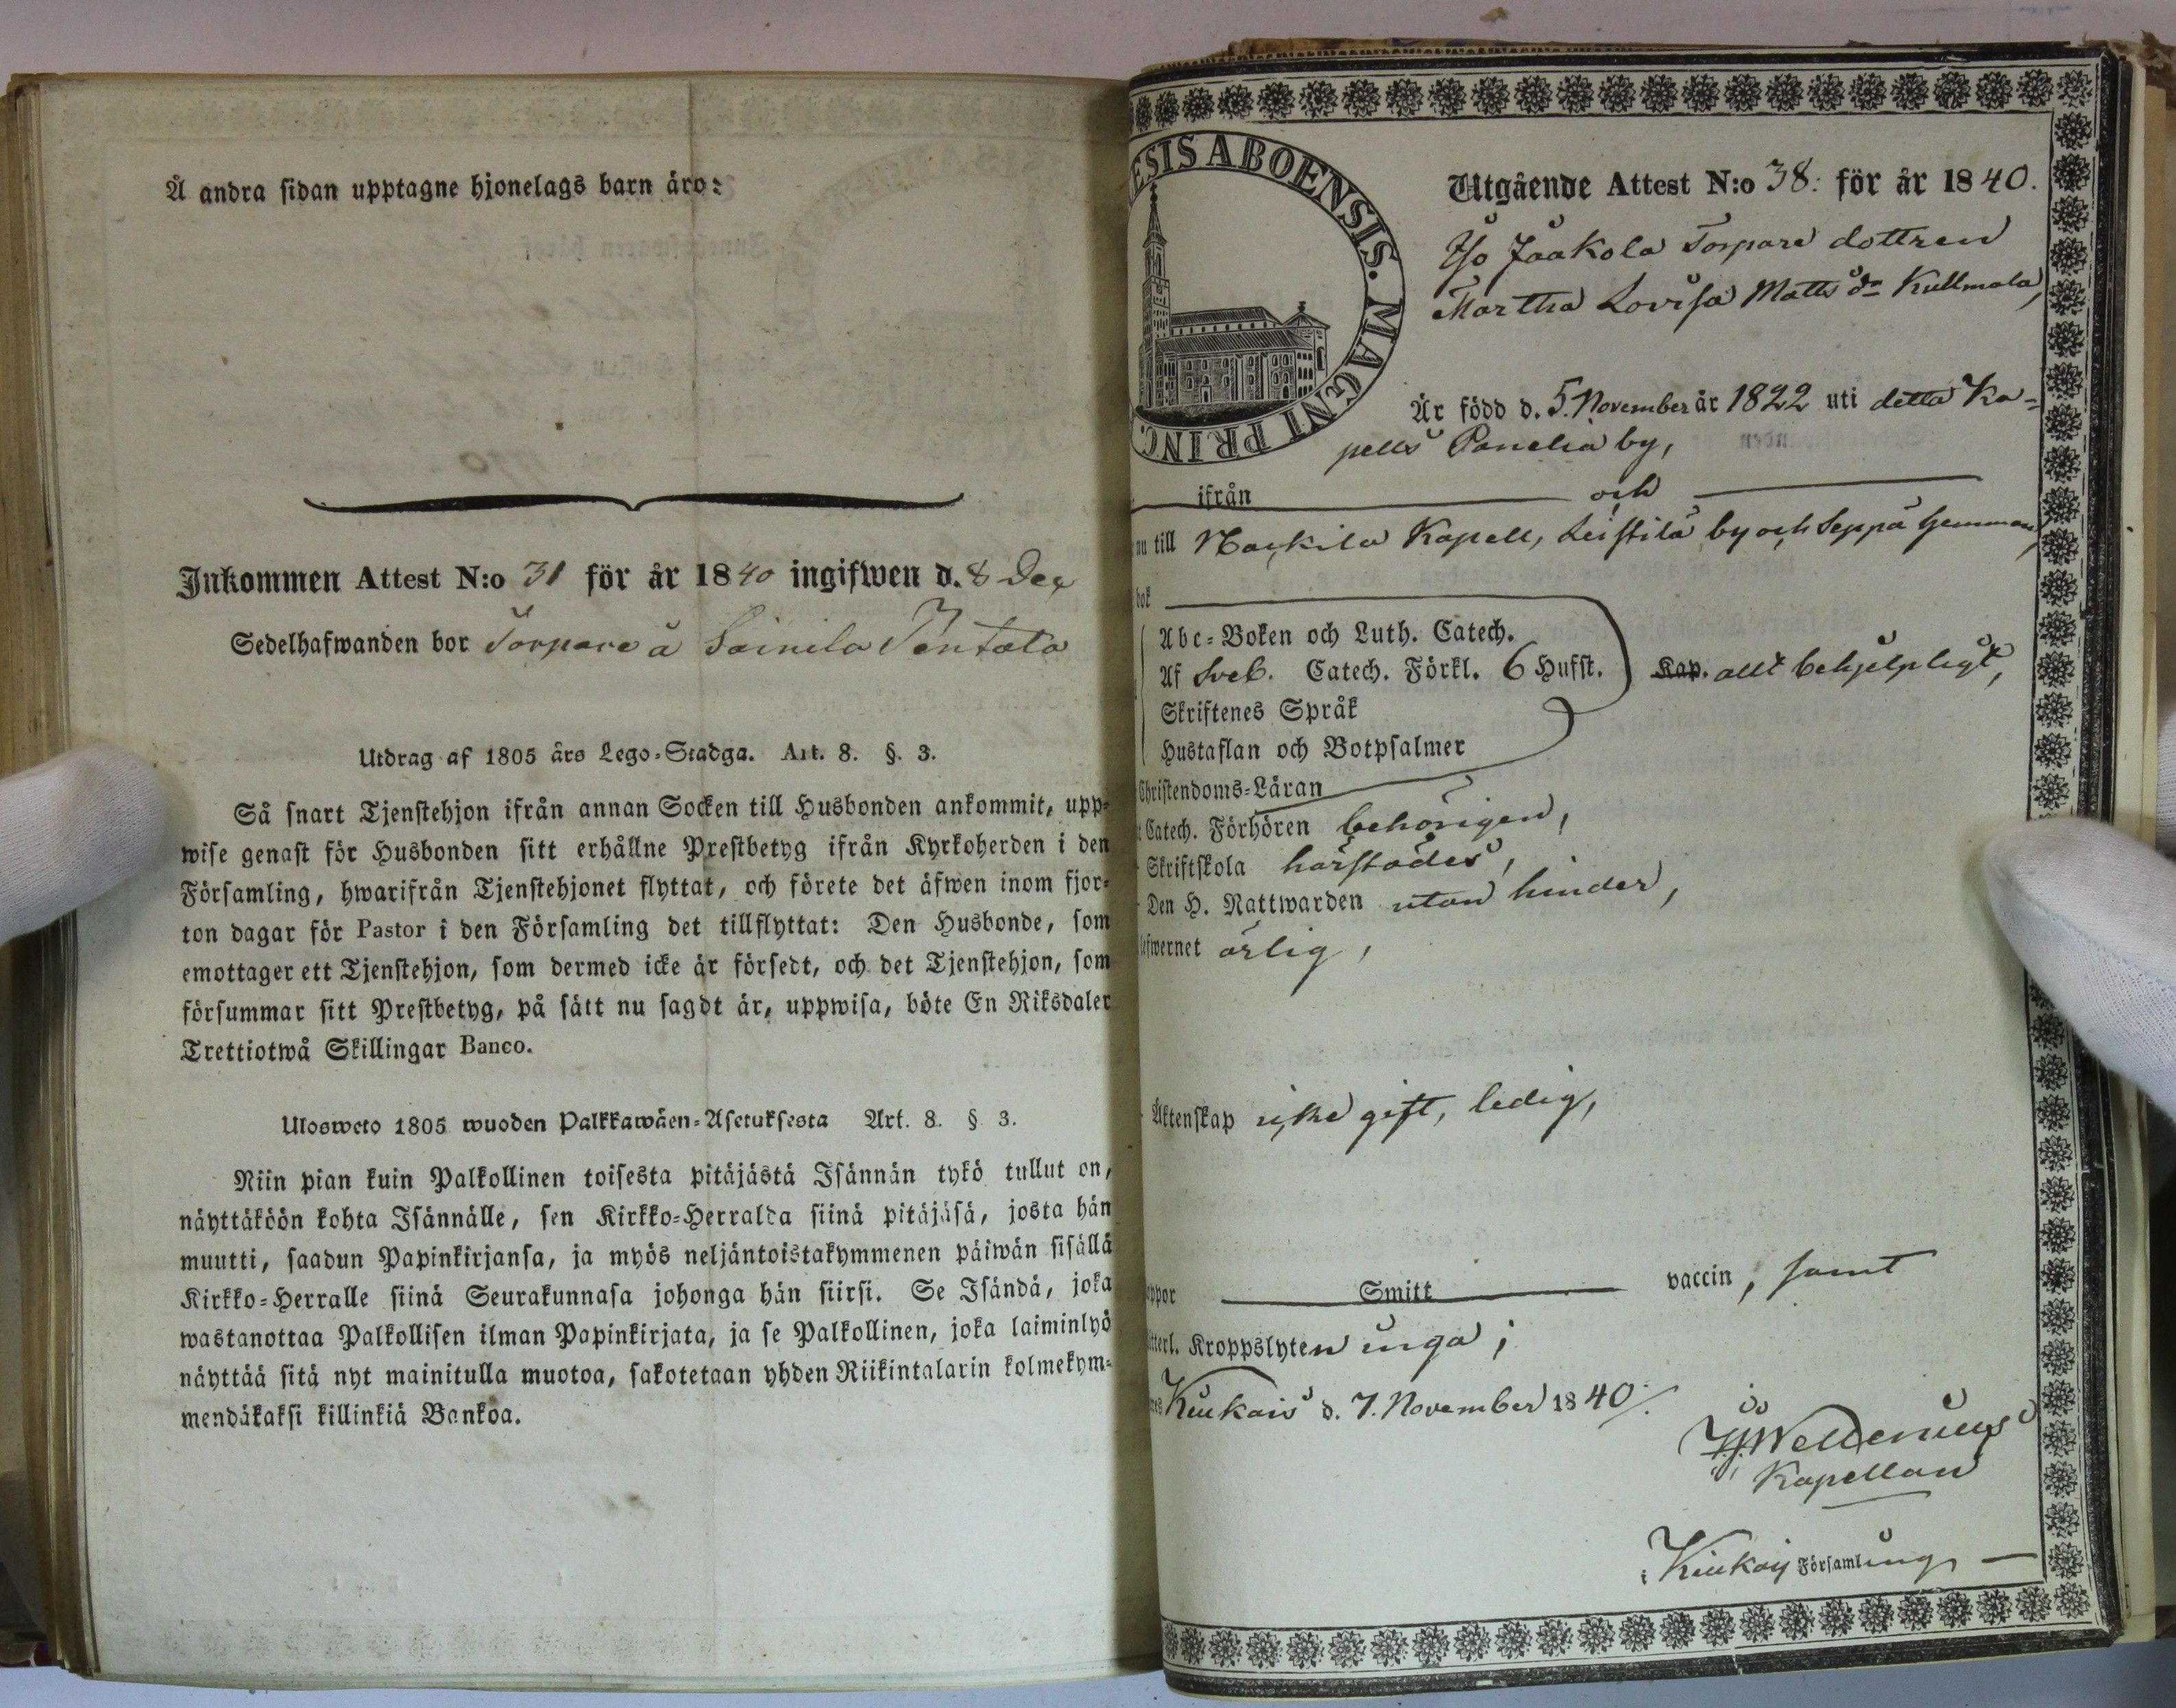 Å andra sidan upptagne hjonelags barn äro:
Inkommen Attest N:o 31 för år 1840 ingifwen d. 8 Dec
Sedelhafwanden bor Torpare å Soinila Pentala
Utdrag af 1805 års Lego-Stadga. Art. 8. §. 3.
Så snart Tjenstehjon ifrån annan Socken till Husbonden ankommit, upp-
wise genast för Husbonden sitt erhållne Prestbetyg ifrån Kyrkoherden i den
Församling, hwarifrån Tjenstehjonet flyttat, och förete det äfwen inom fjor-
ton dagar för Pastor i den Församling det tillflyttat: Den Husbonde, som
emottager ett Tjenstehjon, som dermed icke är försedt, och det Tjenstehjon, som
försummar sitt Prestbetyg, på sätt nu sagdt är, uppwisa, böte En Riksdaler
Trettiotwå Skillingar Banco.
Ulosweto 1805 wuoden Palkkawäen-Asetuksesta Art. 8. § 3.
Niin pian kuin Palkollinen toisesta pitäjästä Isännän tykö tullut on,
näyttäköön kohta Isännälle, sen Kirkko-Herralda siinä pitäjäsä, josta hän
muutti, saadun Papinkirjansa, ja myös neljäntoistakymmenen päiwän sisällä
Kirkko-Herralle siinä Seurakunnasa johonga hän siirsi. Se Isändä, joka
wastanottaa Palkollisen ilman Papinkirjata, ja se Palkollinen, joka laiminlyö
näyttää sitä nyt mainitulla muotoa, sakotetaan yhden Riikintalarin kolmekym-
mendäkaksi killinkiä Bankoa.
ESIS ABOENSIS. MAGNI PRINC.
Utgående Attest N:o 38: för år 1840.
Iso Jaakola Torpare dottren
Martha Lovisa Matts dr Kullmala,
Är född d. 5. November år 1822 uti detta Ka-
pells Panelia by,
ifrån och
nu till Nackila Kapell, Leistilä by och Seppä hemman,
bok
Abc-Boken och Luth. Catech.
Af Sveb. Catech. Förkl. 6 Hufst. Kap. allt behjelpligt,
Skriftenes Språk
Hustaflan och Botpsalmer
Christendoms-Läran
Catech. Förhören behörigen,
Skriftskola härstädes,
Den H. Nattwarden utan hinder,
efwernet ärlig,
Äktenskap icke gift, ledig,
oppor Smitt vaccin, samt
tterl. Kroppslyten inga;
Kiukais d. 7. November 1840/.
Wellenius
Kapellan
i Kiukais Församling